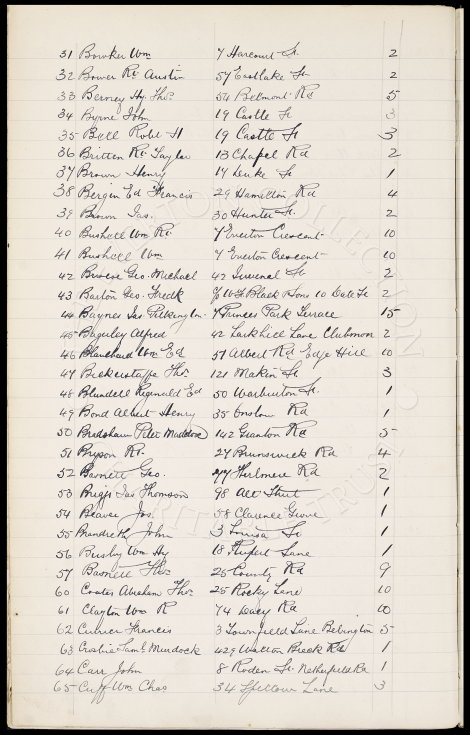 31 Bowker Wm 7 Harcourt St. 2
32 Bower Rt. Austin 57 Eastlake St 2
33 Berney Hy. Thos. 54 Belmont Rd 5
34 Byrne John 19 Castle St 3
35 Bell Robt H 19 Castle St 3
36 Britten Rt. Taylor 13 Chapel Rd 2
37 Brown Henry 17 Duke St 1
38 Bergin Ed Francis 29 Hamilton Rd 4
39 Brown Jas. 30 Hunter St. 2
40 Bushell Wm Rt. 7 Everton Crescent 10
41 Bushell Wm 7 Everton Crescent 10
42 Geo. Michael 42 Juvenal St 2
43 Barton Geo. Fredk Black & Sons 10 Dale St 2
44 Baynes Jas Pilkington 7 Princes Park Terrace 15
45 Baguley Alfred 42 Larkhill Lane Clubmoor 2
46 Blanchard Wm Ed 57 Albert Rd Edge Hill 10
47 Bickerstaffe Thos. 121 Makin St 3
48 Blundell Reginald Ed 50 Warburton St. 1
49 Bond Albert Henry 35 Onslow Rd 1
50 Bradshaw Peter 142 Granton Rd 5
51 Bryson Rt. 27 Brunswick Rd 4
52 Barnett Geo. 77 Thirlmere Rd 2
53 Briggs Jas Thomson 98 Street 1
54 Beaver Jos. 58 Clarence Grove 1
55 Brandreth John 3 Louisa St 1
56 Busby Wm Hy 18 Rupert Lane 1
57 Barnett Thos. 25 County Rd 9
60 Coates Abraham Thos. 25 Rocky Lane 10
61 Clayton Wm R 74 Dacy Rd 10
62 Currier Francis 3 Townfield Lane Bebington 5
63 Saml. Murdock 429 Walton Breck Rd 1
64 Carr John 8 Roden St. Netherfield Rd 1
65 Cuff Wm Chas 34 Spellow Lane 3